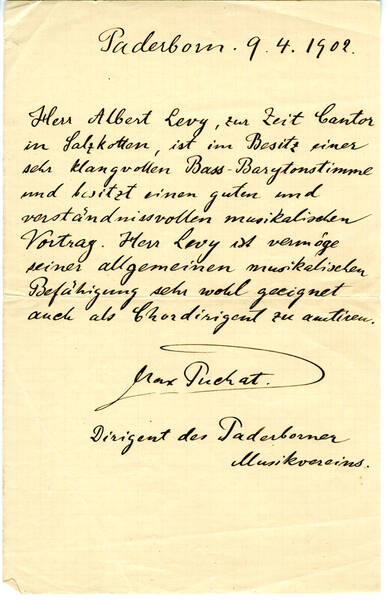 Paderborn. 9. 4. 1902.
Herr Albert Levy, zur Zeit Cantor
in Salzkotten, ist im Besitz einer
sehr klangvollen Bass-Barytonstimme
und besitzt einen guten und
verständnissvollen musikalischen
Vortrag. Herr Levy ist vermöge
seiner allgemeinen musikalischen
Befähigung sehr wohl geeignet
auch als Chordirigent zu amtiren.
Max Puchat.
Dirigent des Paderborner
Musikvereins.